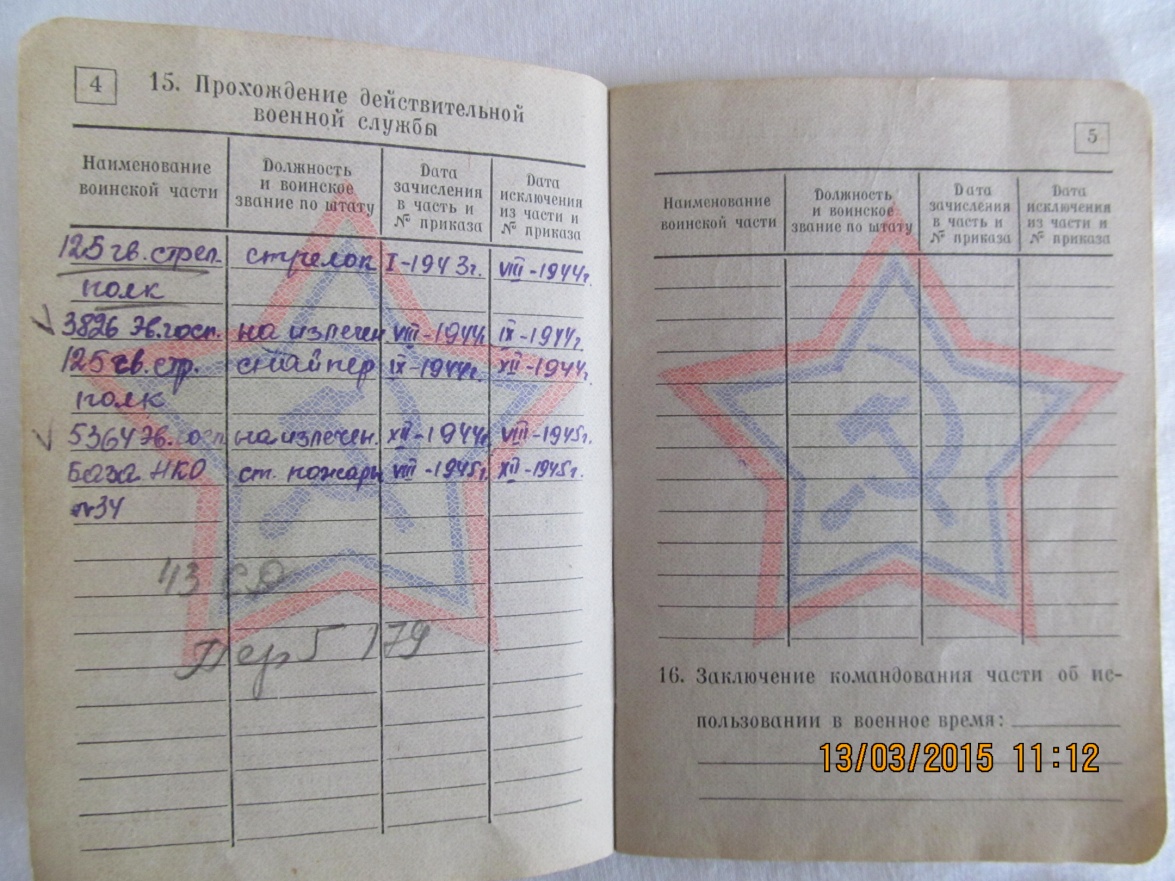 4
15. Прохождение действительной
военной службы
Наименование
воинской части
Должность
и воинское
звание по штату
Дата
зачисления
в часть и
№ приказа
Дата
исключения
из части и
№ приказа
125 гв. стрел. стрелок I-1943г. VIII-1944г.
полк
3826 Эв. госп. на излечен VIII-1944г. IX-1944г.
125 гв. стр. снайпер IX-1944г. XII-1944г.
полк
5364 Эв. госп. на излечен. XII-1944г. VIII-1945г.
База НКО ст. пожарн VIII-1945г. XII-1945г.
№34
43 СД
179
5
Наименование
воинской части
Должность
и воинское
звание по штату
Дата
зачисления
в часть и
№ приказа
Дата
исключения
из части и
№ приказа
16. Заключение командования части об ис-
пользовании в военное время:
13/03/2015 11:12